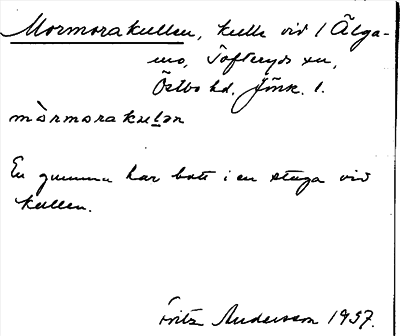 Mormorakullen, kulle vid 1 Älga-
mo, Tofteryds sn,
Östbo hd. Jönk. l.
mòrmorakulən
En gumma har bott i en stuga vid
kullen.
Fritz Andersson 1937.